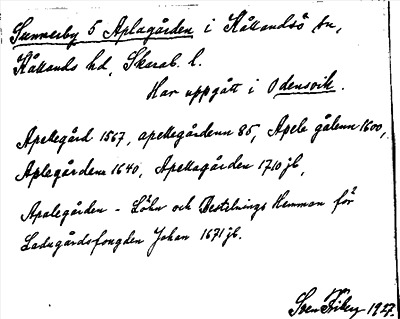 Sunnerby 5 Aplagården i Kållandsö sn,
Kållands hd, Skarab. l.
Har uppgått i Odensvik.
Apellegård 1567, apellegårdenn 85, Apele gålenn 1600,
Aplegårdenn 1640, Apellagården 1710 jb,
Apalegården - Löhn och Bestelnings Hemman för
Ladugårdsfougden Johan 1671 jb.
Sven 1927.